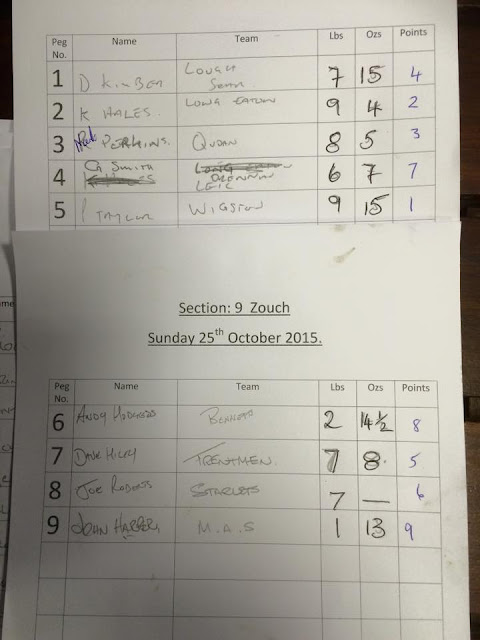 Peg No. Name Team Lbs Ozs Points
1 D Kimber Lough Soar 7 15 4
2 K HALES. LONG EATON 9 4 2
3 PERKINS. QUDAN 8 5 3
4 Smith LEIC 6 7 7
5 TAYLOR WIGSTON 9 15 1
Section: 9 Zouch
Sunday 25th October 2015.
Peg No. Name Team Lbs Ozs Points
6 ANDY 2 14½ 8
7 DAVE TRENTMEN. 7 8 5
8 JOE ROBERTS STARLETS 7 — 6
9 JOHN HARPER M.A.S 1 13 9